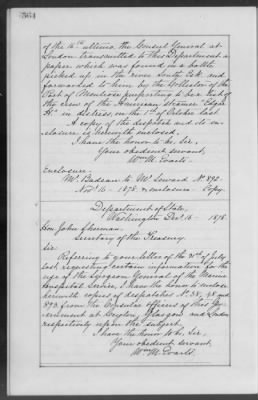 364
of the 16th ultimo, the Consul General at
London transmitted to this Department a
paper which was found in a bottle
picked up in the river South Esk and
forwarded to him by the Collector of the
Port of Montrose purporting to be a list of
the crew of the American steamer "Edgar
" in distress, on the 1st of October last.
A copy of the despatch and its en-
closure is herewith enclosed.
I have the honor to be, Sir,
Your obedient servant,
Wm M. Evarts.
Enclosure.
Mr. Badeau to Mr. Seward No 892
Novr. 16 - 1878, & enclosure. Copy.
Department of State,
Washington Decr. 16 - 1878.
Hon John Sherman,
Secretary of the Treasury.
Sir
Referring to your letter of the of July
last requesting certain information for the
use of the Surgeon General of the Marine
Hospital Service, I have the honor to enclose
herewith copies of despatches No. 38, 48 and
893 from the Consular officers of this Gov-
ernment at Ceylon, Glasgow and London
respectively upon the subject.
I have the honor to be, Sir,
Your obedient servant,
Wm M. Evarts.